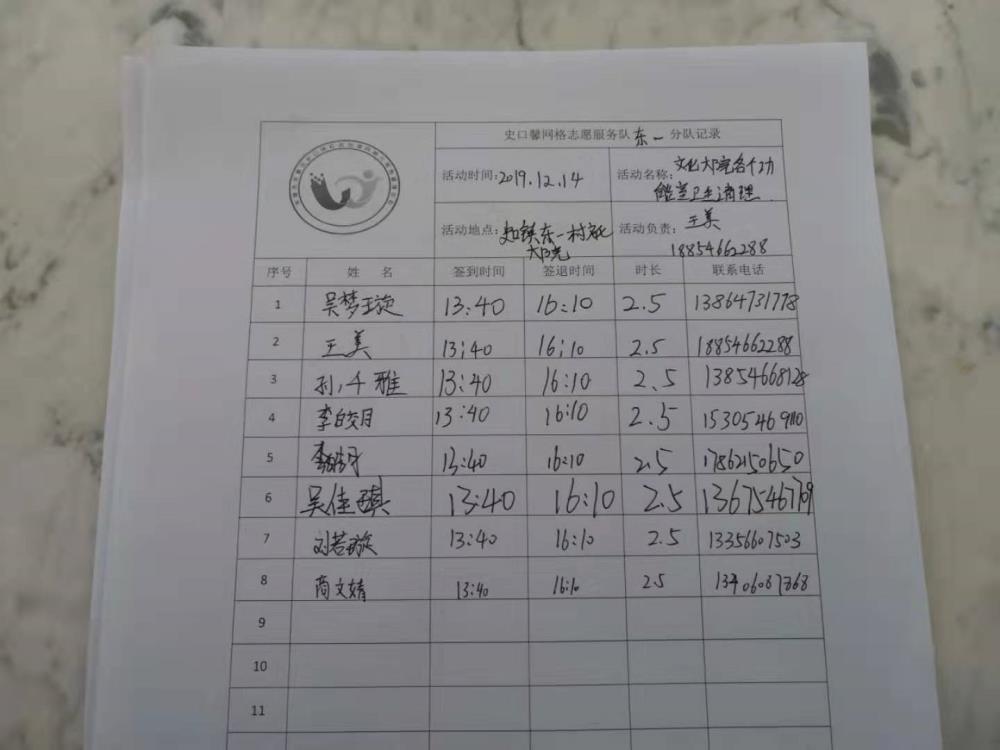 史口馨网格志愿服务队东一分队记录
活动时间:2019.12.14
活动名称:文化大院各个功
能室卫生清理.
活动地点:史口镇东一村文化
大院
活动负责:王美
18854662288
序号 姓 名 签到时间 签退时间 时长 联系电话
1 吴梦璇 13:40 16:10 2.5 13864731778
2 王美 13:40 16:10 2.5 18854662288
3 孙千雅 13:40 16:10 2.5 13854668128
4 李皎月 13:40 16:10 2.5 15305469110
5 13:40 16:10 2.5 17862150650
6 吴佳琪 13:40 16:10 2.5 13675467709
7 刘若璇 13:40 16:10 2.5 13356607503
8 商文婧 13:40 16:10 2.5 13406087868
9
10
11